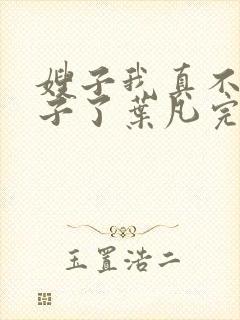 嫂子我真不
子了葉凡完
玉置浩二